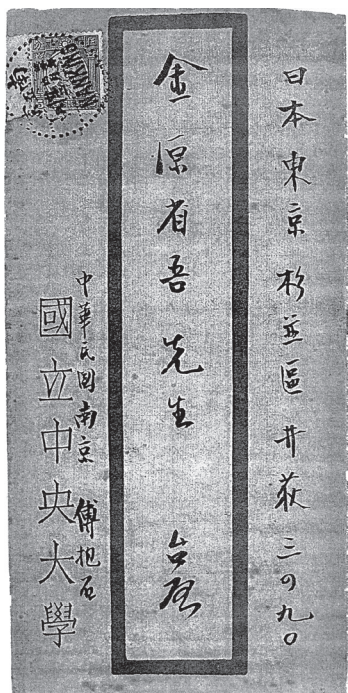 日本東京杉並區井荻三の九〇
金原省吾先生　台啓
中華民國南京　傅抱石
國立中央大學
NANKING